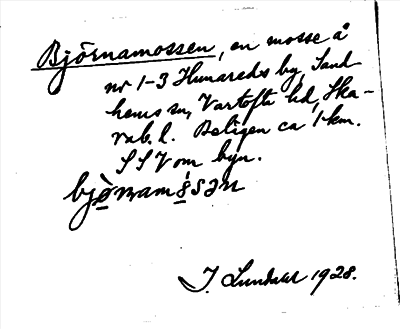 Björnamossen, en mosse å
nr 1-3 Humareds by, Sand
hems sn, Vartofta hd, Ska-
rab. l. Beligen ca 1 km.
SSV om byn.
bjǿnamɵ́sən
J. Lundahl 1928.